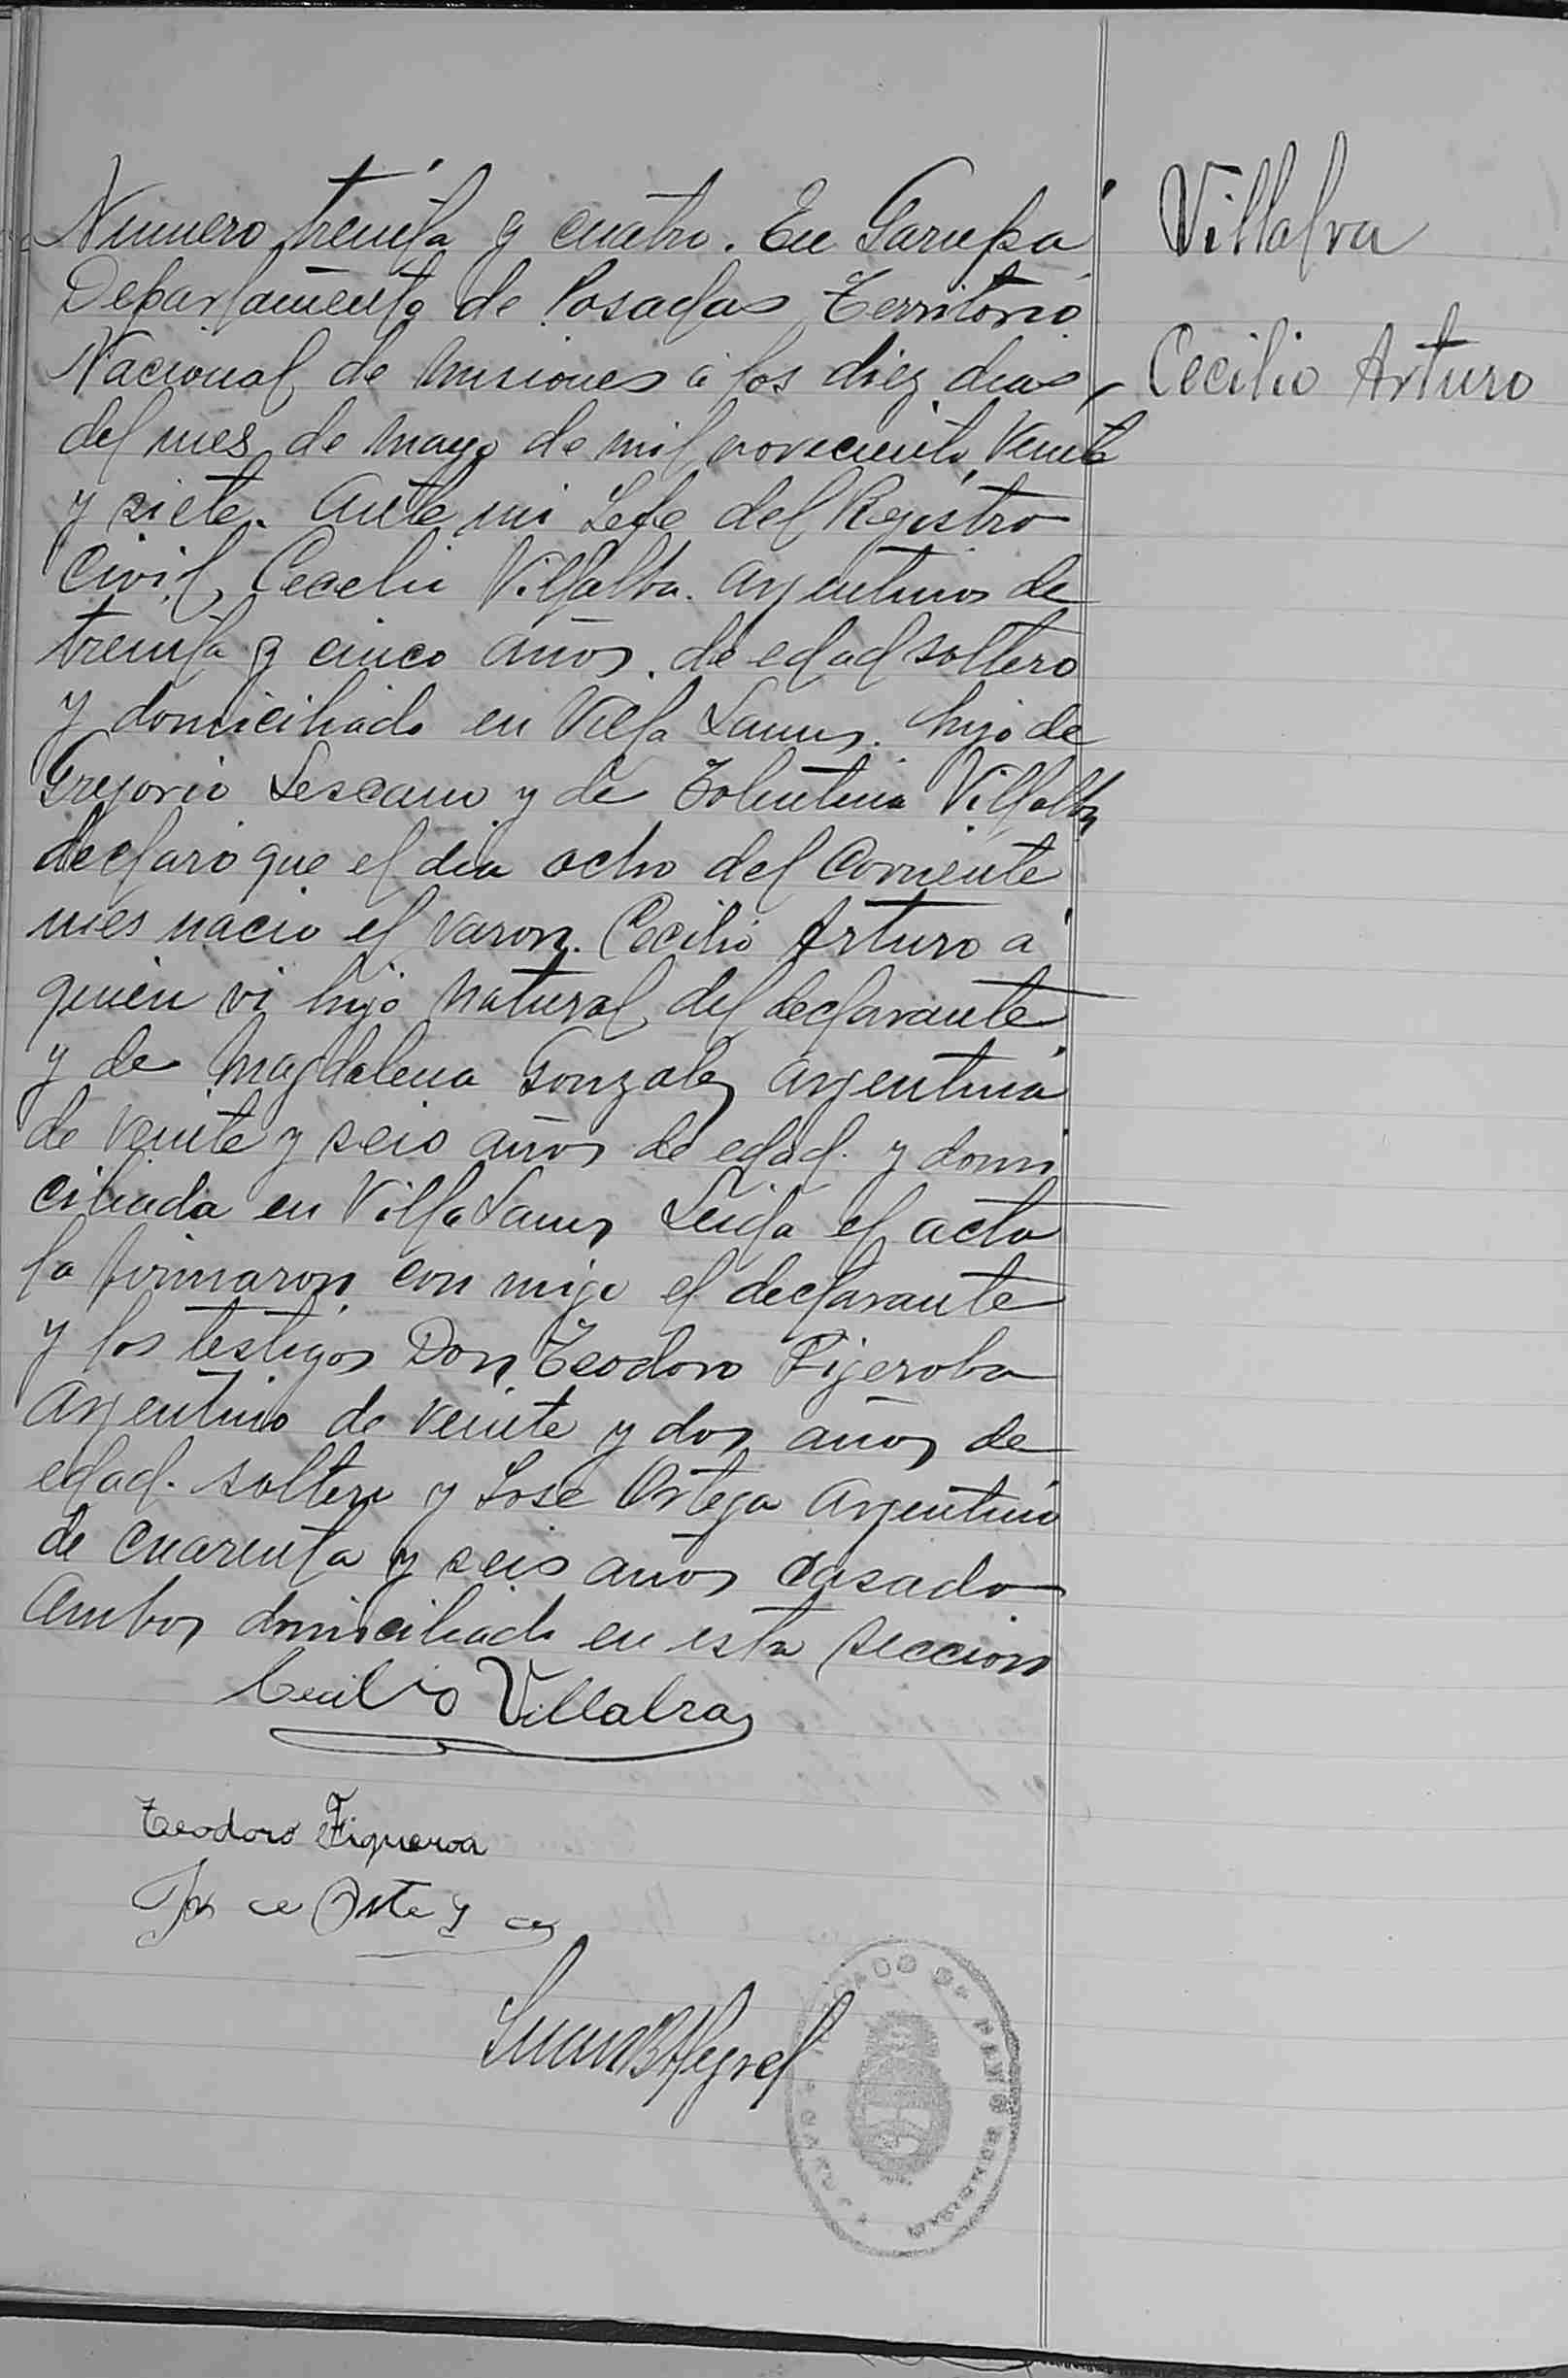 Villalva
Cecilio Arturo
Numero treinta y cuatro. En Garupá
Departamento de Posadas Territorio
Nacional de Misiones á los diez dias
del mes de Mayo de mil novecientos Veinte
y siete. Ante mi Jefe del Registro
Civil, Cecelio Villalba. Argentinos de
treinta y cinco años. de edad soltero
y domiciliado en Villa Lanus. hijo de
Gregorio Lescano y de Tolentina Villalba
declaró que el dia ocho del Corriente
mes nacio el varon. Cecilio Arturo á
quien vi hijo Natural del declarante
y de Magdalena Gonzalez Argentina
de veinte y seis años de edad. y domi
ciliada en Villa Lanus Leida el acta
la firmaron con migo el declarante
y los testigos Don Teodoro Figeroba
Argentino de veinte y dos años de
edad. soltero y Jose Ortega Argentino
de cuarenta y seis años casado
Ambos domiciliado en esta seccion
Cecilio Villalva
Teodoro Figueroa
Jose Ortega
Juan B